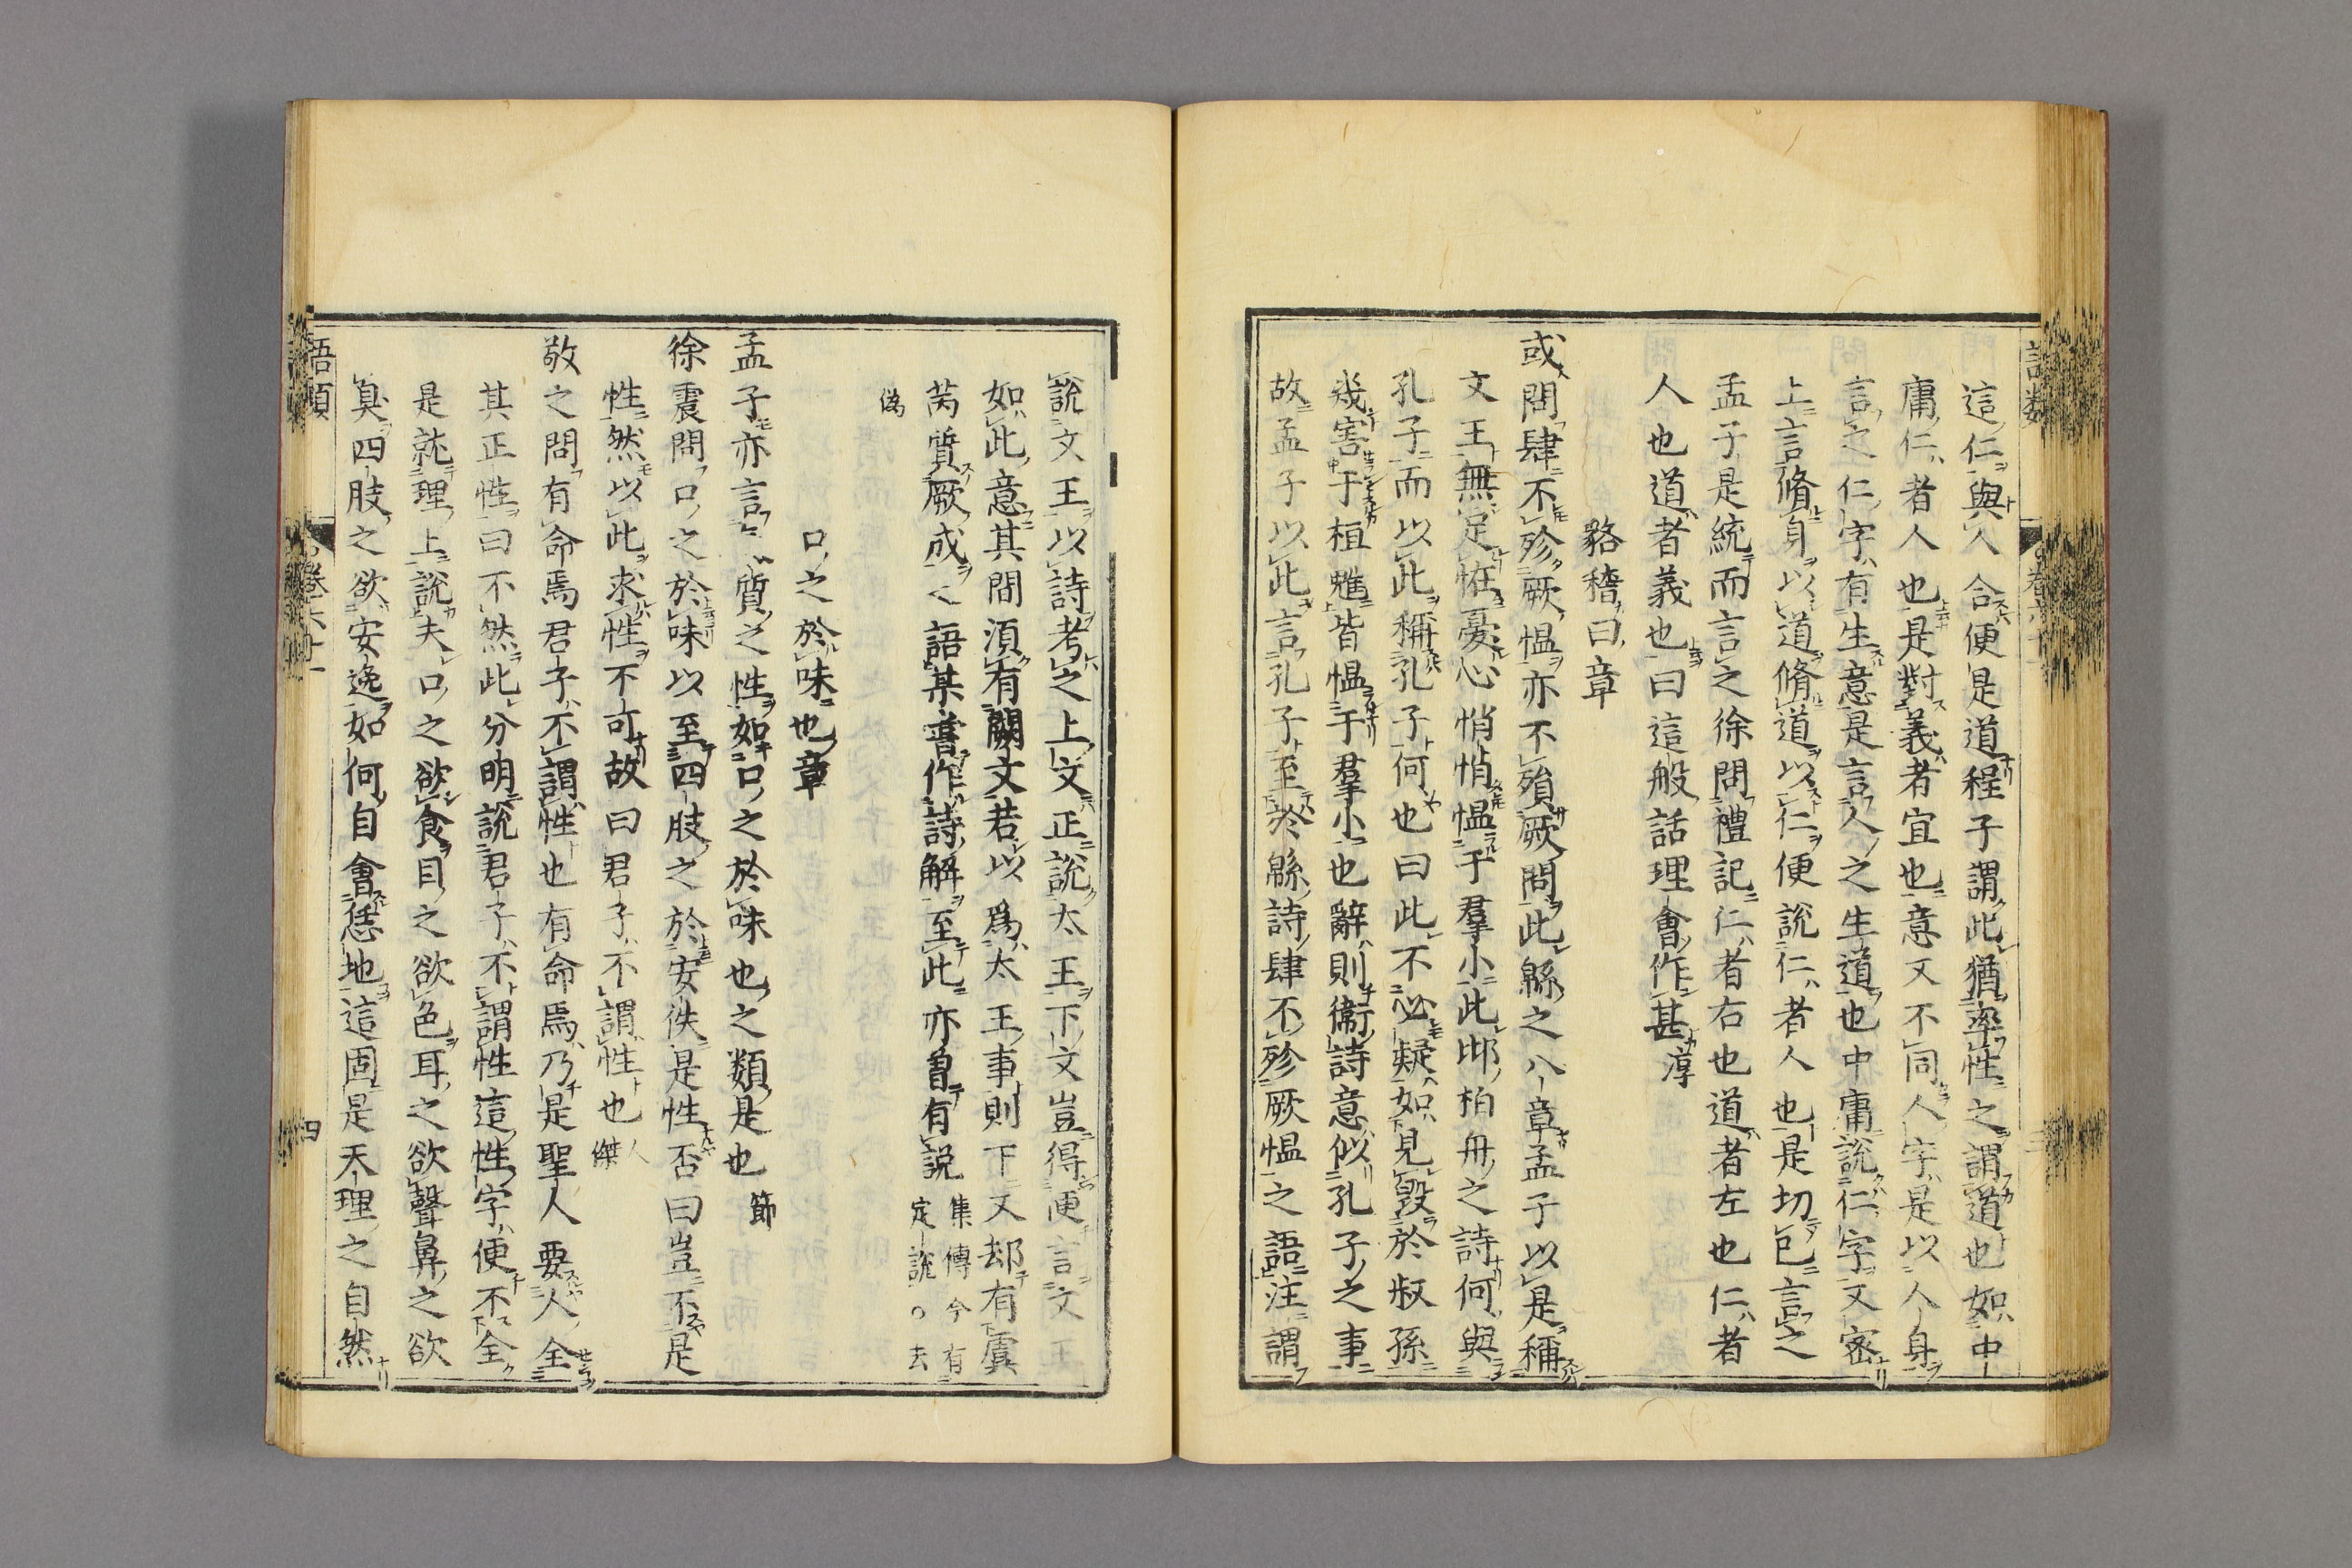 這仁與人合便是道程子謂此猶率性之謂道也如中
庸仁者人也是對義者宜也意又不同人字是以人身
言之仁字有生意是言人之生道也中庸說仁字又密
上言脩身以道脩道以仁便說仁者人也是切己言之
孟子是統而言之徐問禮記仁者右也道者左也仁者
人也道者義也曰這般話理會作甚 淳
貉稽曰章
或問肆不殄厥愠亦不殞厥問此緜之八章孟子以是稱
文王無足恠憂心悄悄愠于羣小此邶柏舟之詩何與
孔子而以此稱孔子何也曰此不必疑如見毀於叔孫
幾害于桓魋皆愠于羣小也辭則衞詩意似孔子之事
故孟子以此言孔子至於緜詩肆不殄厥愠之語注謂
說文王以詩考之上文正說太王下文豈得便言文王
如此意其間須有闕文若以爲太王事則下又却有虞
芮質厥成之語某甞作詩解至此亦曾有說 集傳今有定說○去
僞
口之於味也章
孟子亦言氣質之性如口之於味也之類是也 節
徐震問口之於味以至四肢之於安佚是性否曰豈不是
性然以此求性不可故曰君子不謂性也 人傑
敬之問有命焉君子不謂性也有命焉乃是聖人要人全
其正性曰不然此分明說君子不謂性這性字便不全
是就理上說夫口之欲食目之欲色耳之欲聲鼻之欲
臭四肢之欲安逸如何自會恁地這固是天理之自然
語類
卷六十一
四